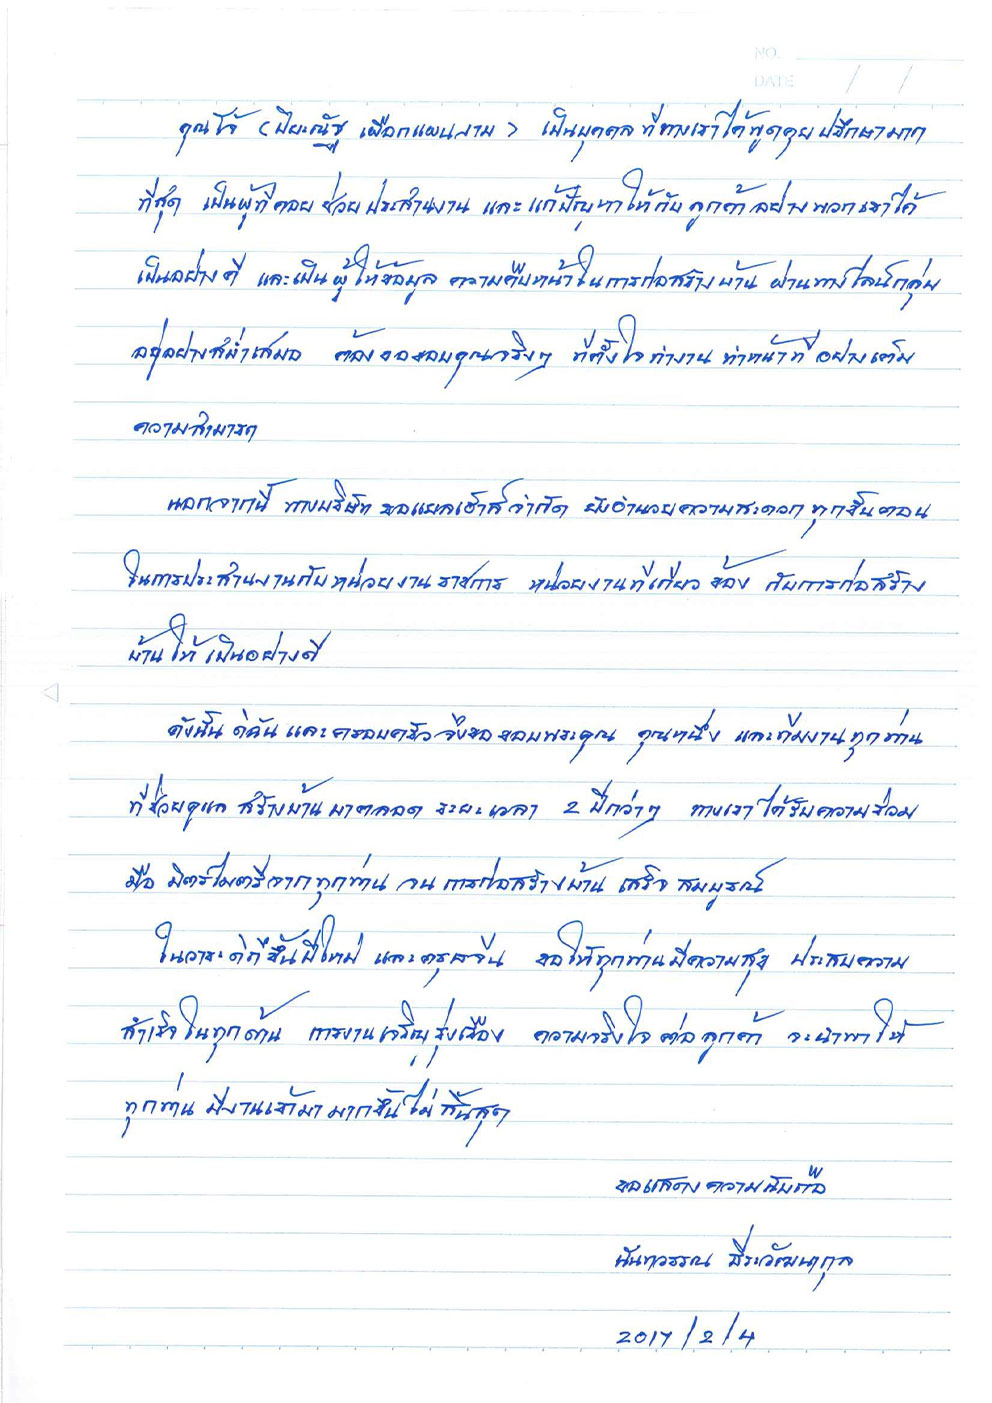 NO.
DATE / /
คุณโจ้ (ปิยะณัฐ เผือกแผนงาม) เป็นบุคคลที่ทางเราได้พูดคุยปรึกษามาก
ที่สุด เป็นผู้ที่คอยช่วยประสานงาน และแก้ปัญหาให้กับลูกค้าอย่างพวกเราได้
เป็นอย่างดี และเป็นผู้ให้ข้อมูล ความคืบหน้าในการก่อสร้างบ้าน ผ่านทางไลน์กลุ่ม
อยู่อย่างสม่ำเสมอ ต้องขอขอบคุณจริงๆ ที่ตั้งใจทำงาน ทำหน้าที่อย่างเต็ม
ความสามารถ
นอกจากนี้ ทางบริษัท รอแยลเฮ้าส์จำกัด ยังอำนวยความสะดวกทุกขั้นตอน
ในการประสานงานกับหน่วยงานราชการ หน่วยงานที่เกี่ยวข้อง กับการก่อสร้าง
บ้านให้เป็นอย่างดี
ดังนั้น ดิฉันและครอบครัว จึงขอขอบพระคุณ คุณหนึ่ง และทีมงานทุกท่าน
ที่ช่วยดูแล สร้างบ้านมาตลอดระยะเวลา 2 ปีกว่าๆ ทางเราได้รับความร่วม
มือ มิตรไมตรีจากทุกท่าน จนการก่อสร้างบ้าน เสร็จสมบูรณ์
ในวาระดิถีขึ้นปีใหม่ และตรุษจีน ขอให้ทุกท่านมีความสุข ประสบความ
สำเร็จในทุกด้าน การงานเจริญรุ่งเรือง ความจริงใจต่อลูกค้า จะนำพาให้
ทุกท่าน มีงานเข้ามามากขึ้นไม่สิ้นสุด
ขอแสดงความนับถือ
นันทวรรณ ธีระวัฒนากุล
2017/2/4